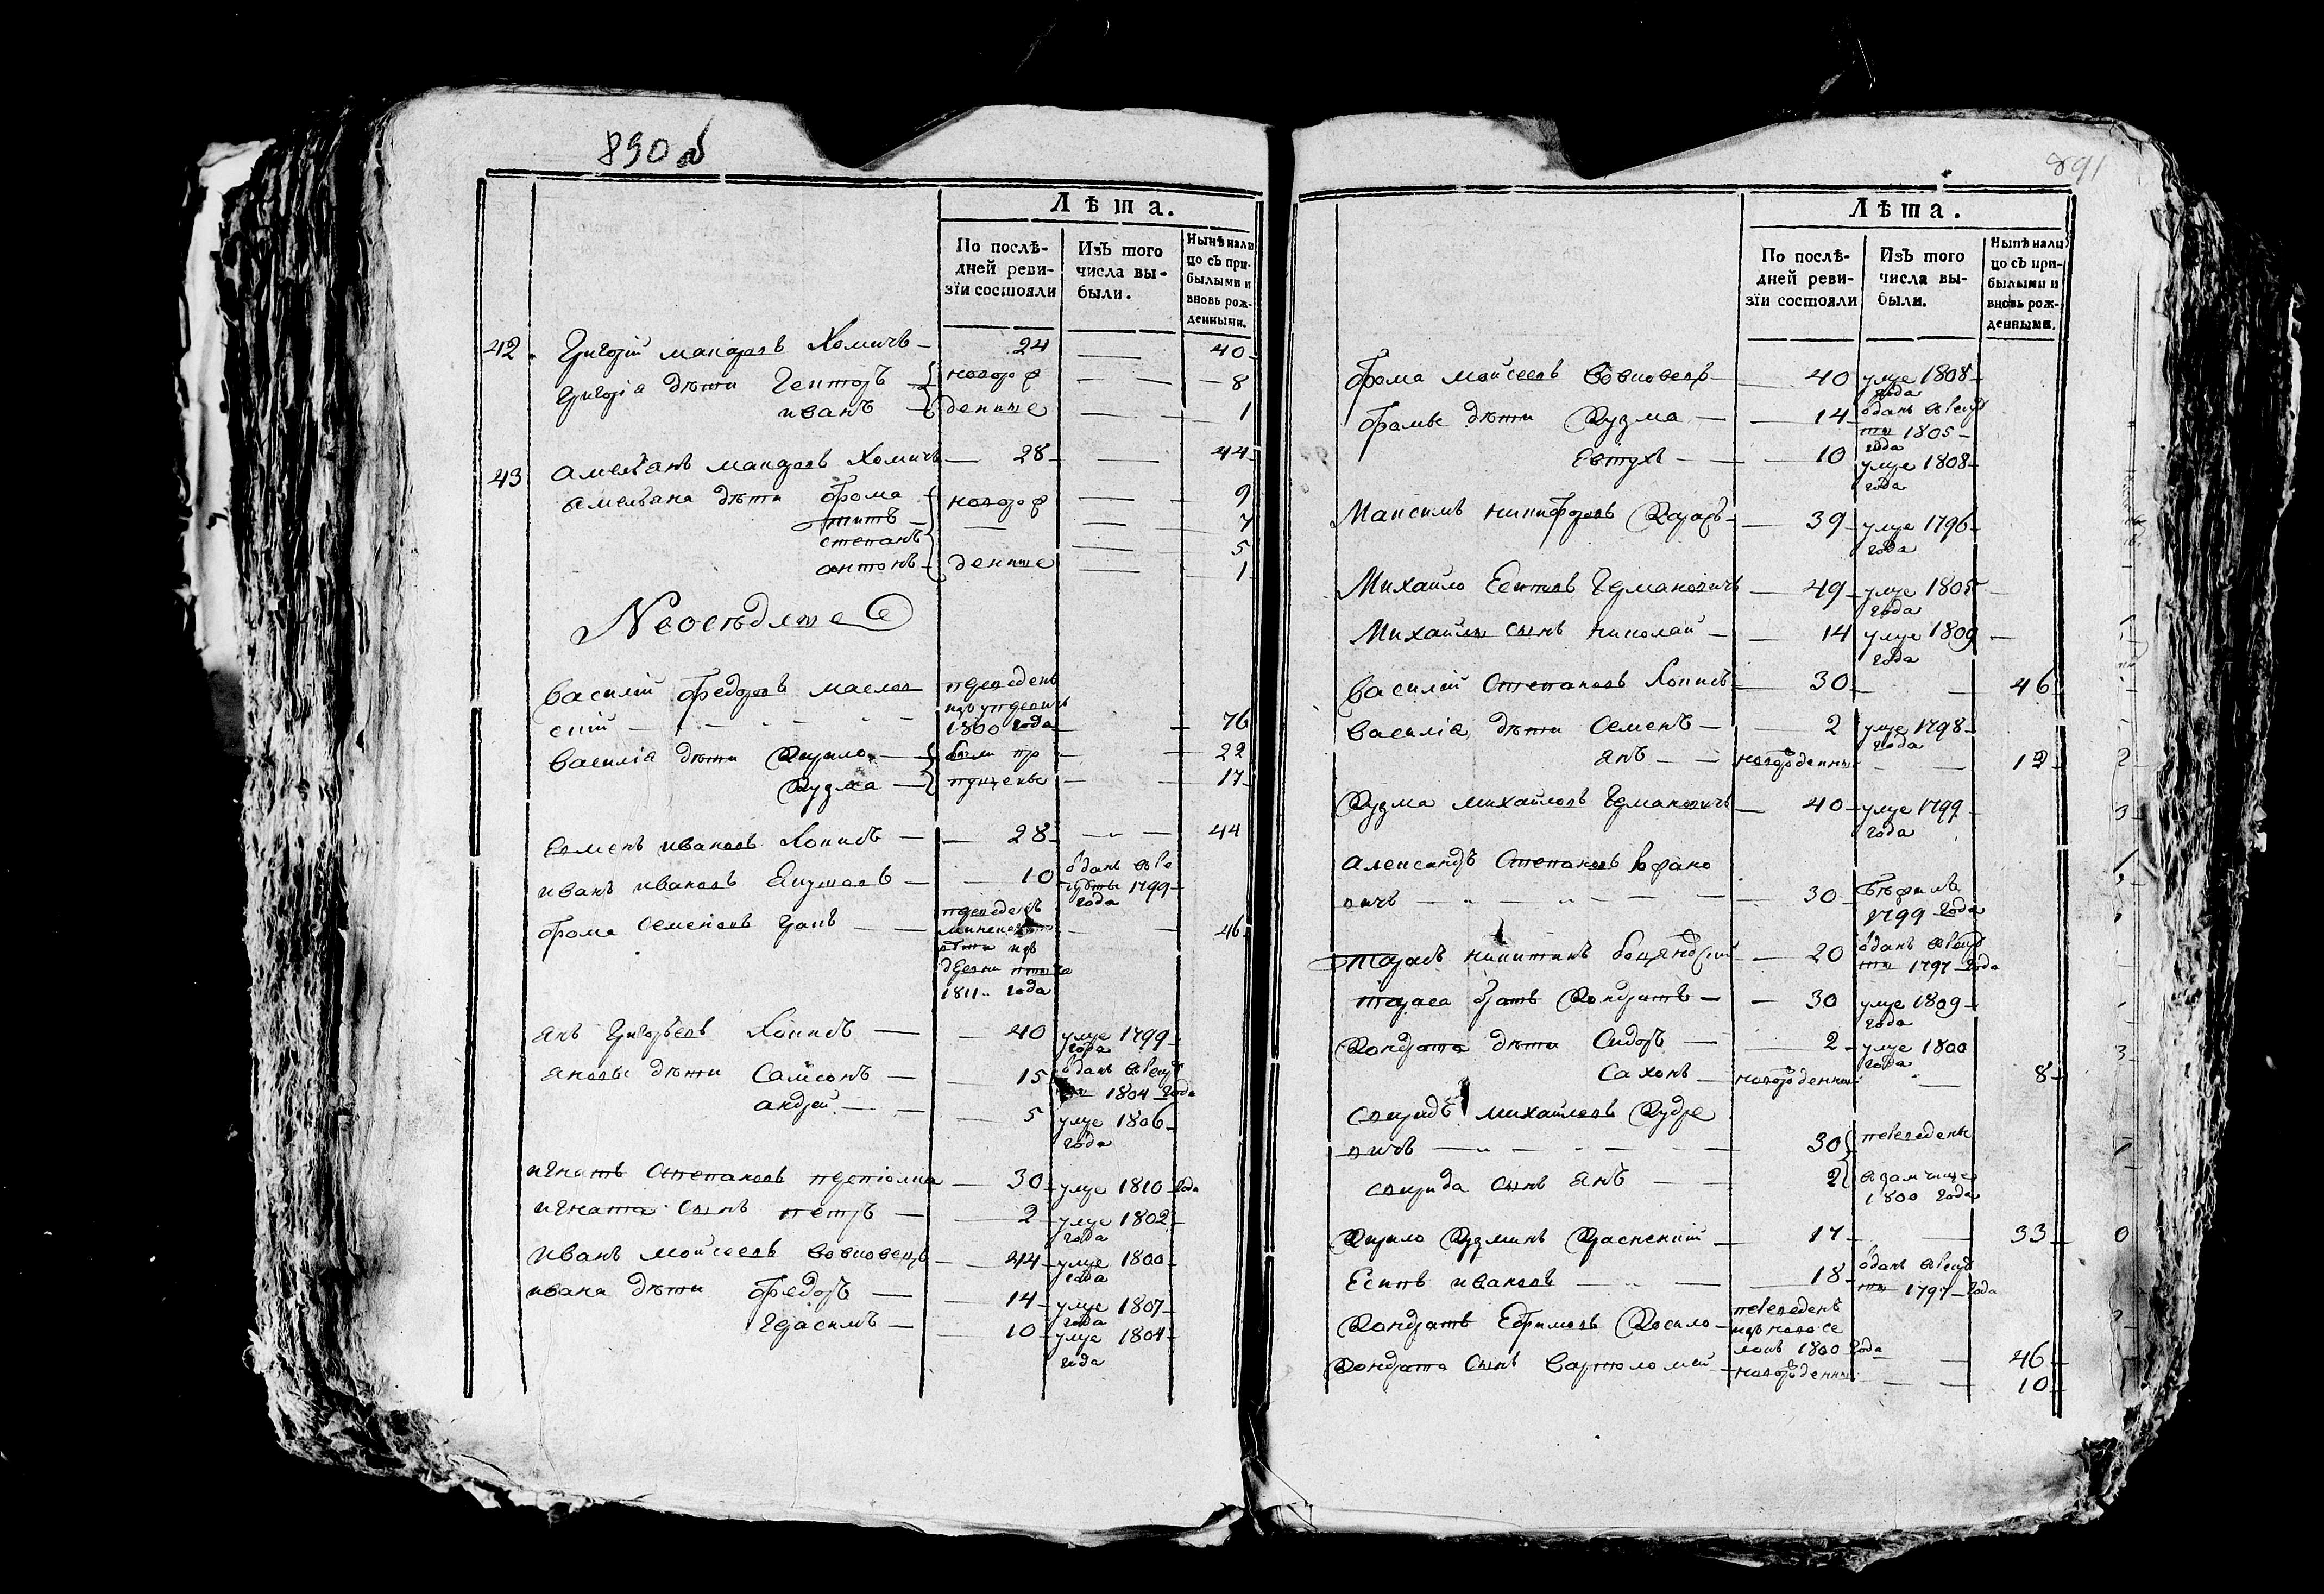 890 об
Лѣта.
По послѣ-
дней реви-
зїи состояли
Изъ того
числа вы-
были.
Нынѣ нали
цо съ при-
былыми и
вновь рож-
денными.
42. Григорій макаровъ Хомичъ — 24 — 40
Григорія дѣти новорож — 8
иванъ денные — 1
43 амельянъ макаровъ Хомичъ — 28 — 44
амельяна дѣти фома новорож — 9
титъ — 7
степанъ — 5
антонъ денные — 1
Неоседлые
василій федоровъ маслов
скій 1800 года — 76
василія дѣти Кирило были пр — 22
Кузма пущены — 17
семенъ ивановъ — 28 — 44
иванъ ивановъ — 10 отданъ врекру
ты 1799
года
фома семеновъ — 46
переведенъ
1811 года
янъ григорьевъ — 40 умре 1799
года
яновы дѣти Самсонъ — 15 отданъ врекру
ты 1804 года
андрей — 5 умре 1806
года
игнатъ Степановъ — 30 умре 1810 года
игната сынъ петръ — 2 умре 1802
года
иванъ мойсеевъ вовковецъ — 44 умре 1800
года
ивана дѣти федоръ — 14 умре 1807
года
Герасимъ — 10 умре 1804
года
891
Лѣта.
По послѣ-
дней реви-
зїи состояли
Изъ того
числа вы-
были.
Нынѣ нали
цо съ при-
былыми и
вновь рож-
денными.
фома мойсеевъ вовковецъ — 40 умре 1808
года
фомы дѣти Кузма — 14 отданъ врекру
ты 1805
года
Евтухъ — 10 умре 1808
года
Максимъ никифоровъ — 39 умре 1796
года
Михайло Германовичъ — 49 умре 1805
года
Михайлы сынъ николай — 14 умре 1809
года
василій Степановъ — 30 — 46
василія дѣти Семенъ — 2 умре 1798
года
янъ — новорожденны — 12
Кузма михайловъ Германовичъ — 40 умре 1799
года
александръ Степановъ
вичъ — 30 бѣжилъ
1799 года
тарасъ никитинъ — 20 отданъ врекру
ты 1797 года
тараса братъ Кондратъ — 30 умре 1809
года
Кондрата дѣти Сидоръ — 2 умре 1800
года
Сахонъ — новорожденны — 8
спиридъ михайловъ Кудре
вичъ — 30 переведены
спирида сынъ янъ — 2
1800 года
Кирило Кузминъ — 17 — 33
Есипъ ивановъ — 18 отданъ врекру
ты 1797 года
Кондратъ Ефимовъ переведенъ
1800 года — 46
Кондрата сынъ вартоломей — новорожденны — 10